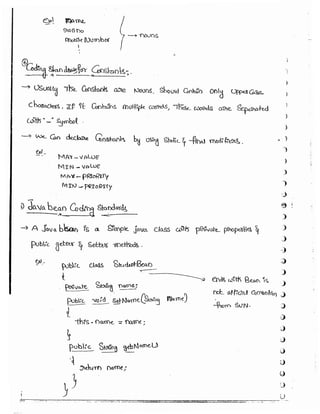 Ex:- name
rollNo
mobileNumber → nouns
⑧ Coding Standards for Constants:-
→ Usually the Constants are Nouns. Should Contain Only UpperCase
Characters. If It Contains multiple words, These words are Separated
with "_" Symbol.
→ We Can declare Constants by using Static & final modifiers.
Ex:- MAX_VALUE
MIN_VALUE
MAX_PRIORITY
MIN_PRIORITY
1) Java bean Coding Standards
→ A Java bean is a Simple java class with private properties &
public getter & Setter methods.
Ex:- public class StudentBean
{
→ Ends with Bean is
not official Convention
from SUN.
private String name;
public void setName(String name)
{
this.name = name;
}
public String getName()
{
return name;
}
}